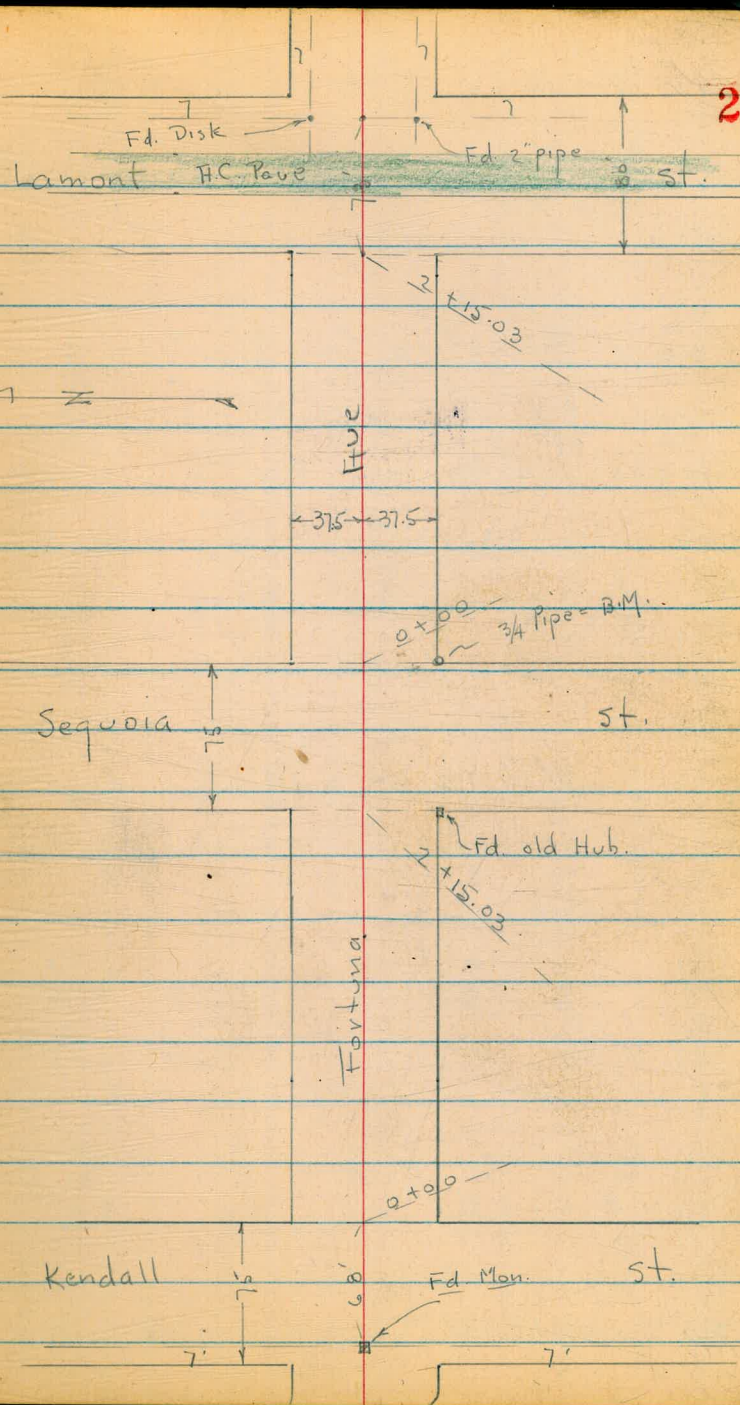 7 7
2
7 7
Fd. Disk
Fd. 2" pipe
Lamont A.C. Pave 73' 80 St.
2+15.03
N
Ave
37.5 37.5
0+00
3/4 Pipe = B.M.
Sequoia 75 St.
Fd. old Hub.
2+15.03
Fortuna
0+00
Kendall 75' 68' Fd. Mon. St.
7' 7'